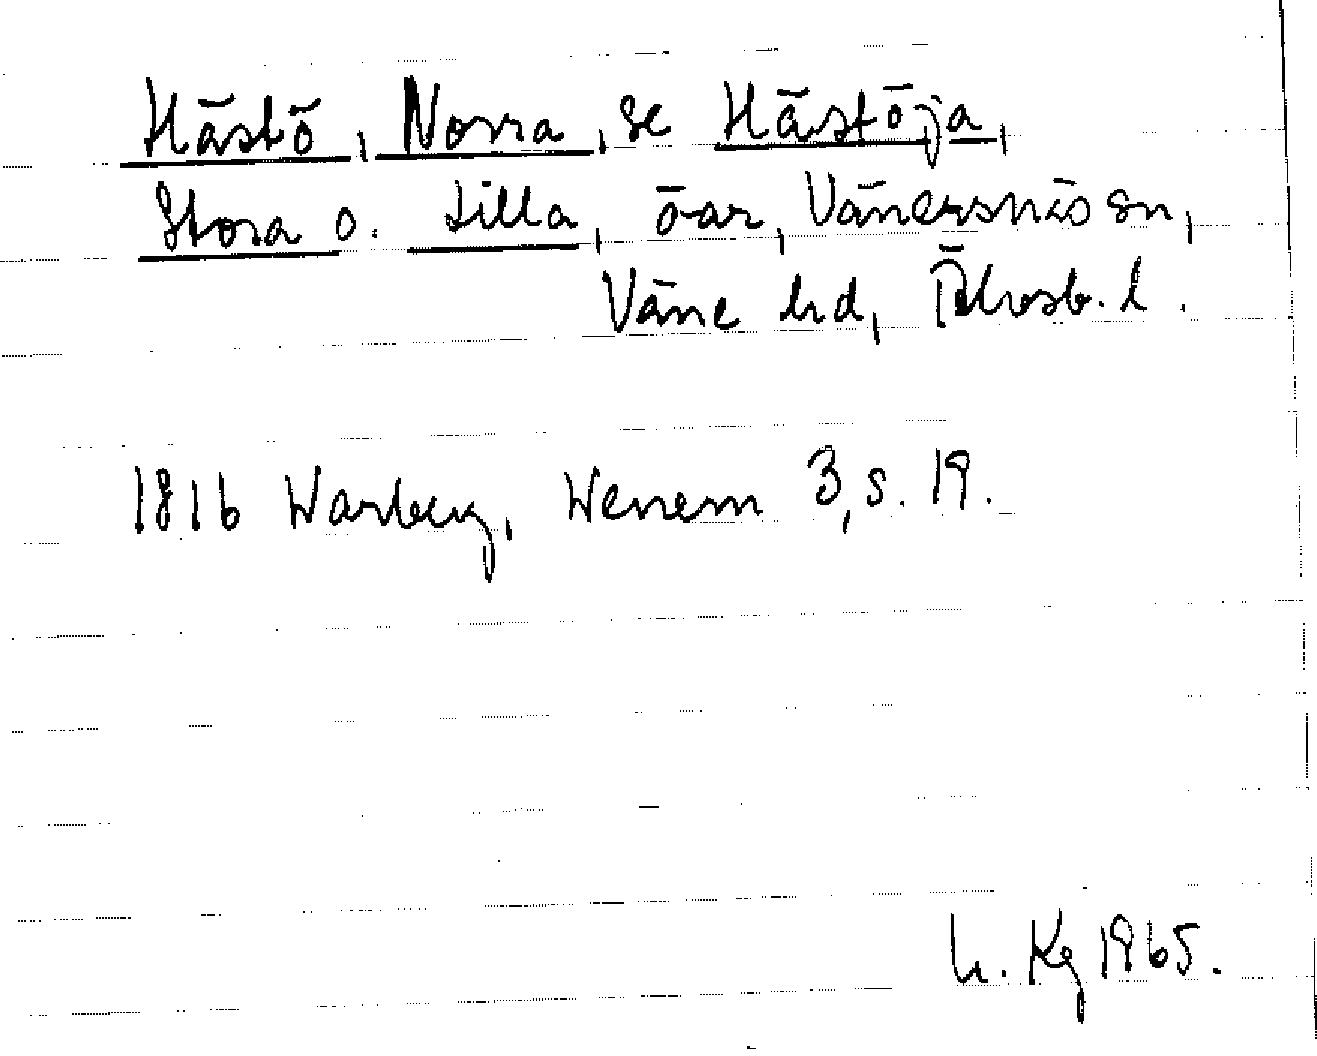 Hästö, Norra, se Hästöja,
Stora o. Lilla, öar, Vänersnäs sn,
Väne hd, Älvsb. l.
1816 Warberg, Wenern 3, s. 19.
h. Kg 1965.